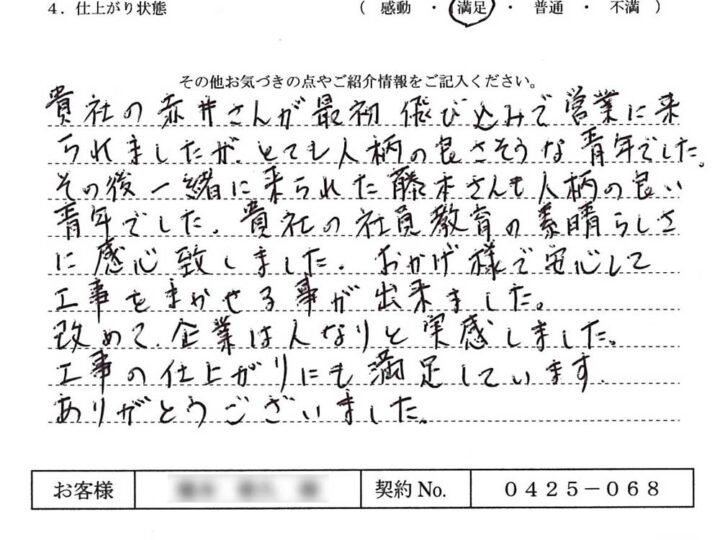 4．仕上がり状態 （ 感動 ・ 満足 ・ 普通 ・ 不満 ）
その他お気づきの点やご紹介情報をご記入ください。
貴社の赤井さんが最初飛び込みで営業に来
られましたが、とても人柄の良さそうな青年でした。
その後一緒に来られた藤本さんも人柄の良い
青年でした。貴社の社員教育の素晴らしさ
に感心致しました。おかげ様で安心して
工事をまかせる事が出来ました。
改めて、企業は人なりと実感しました。
工事の仕上がりにも満足しています。
ありがとうございました。
お客様 契約No. 0425－068